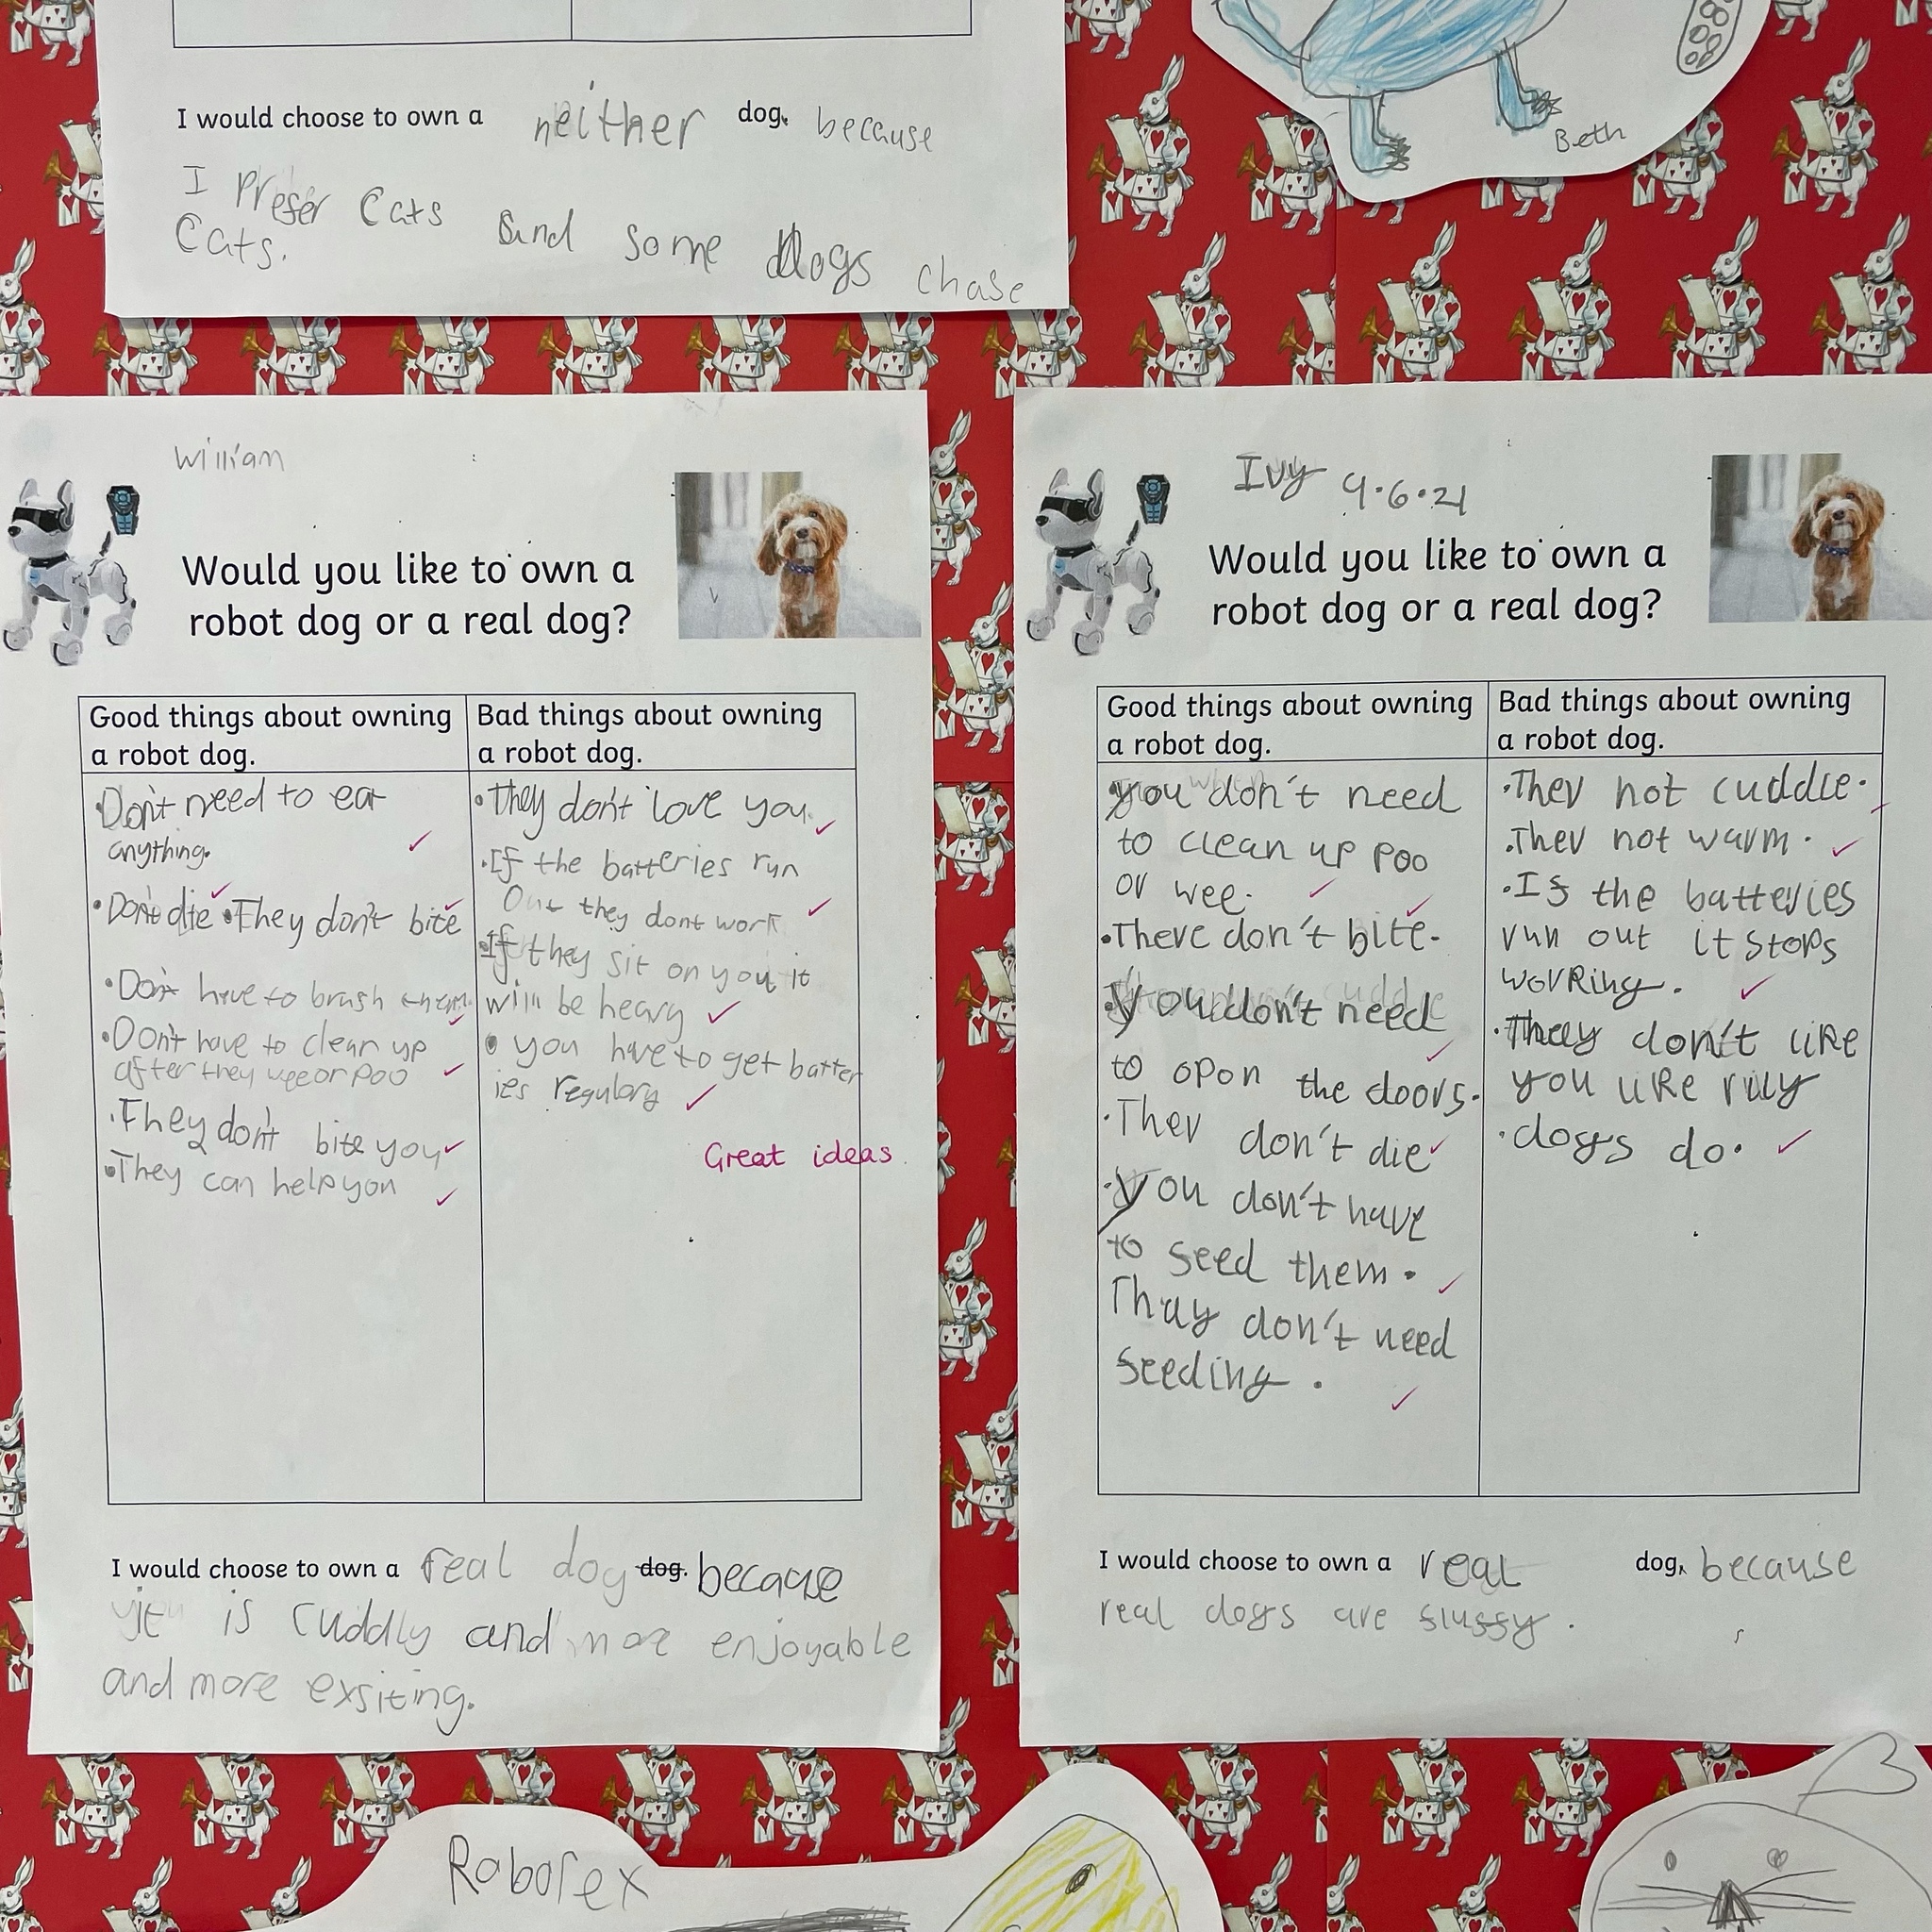 I would choose to own a neither dog, because
I Prefer Cats and some dogs chase
Cats.
Beth
William
Would you like to own a
robot dog or a real dog?
Good things about owning
a robot dog.
Don't need to eat
anything.
•Don't die •They don't bite
•Don't have to brush them.
•Don't have to clean up
after they wee or poo
•They don't bite you
•They can help you
Bad things about owning
a robot dog.
•They don't love you.
•If the batteries run
Out they dont work
If they sit on you it
will be heavy
•you have to get batter
ies regulory
Great ideas
I would choose to own a real dog dog. because
it is cuddly and more enjoyable
and more exsiting.
Ivy 9.6.21
Would you like to own a
robot dog or a real dog?
Good things about owning
a robot dog.
•you don't need
to clean up poo
or wee.
•There don't bite.
•you don't need
to opon the doors.
•Ther don't die
•you don't have
to feed them.
Thay don't need
feeding.
Bad things about owning
a robot dog.
•Ther not cuddle.
•Ther not warm.
•If the batteries
run out it stops
working.
•Thay don't like
you like rily
•dogs do.
I would choose to own a real dog, because
real dogs are fluffy.
Roborex